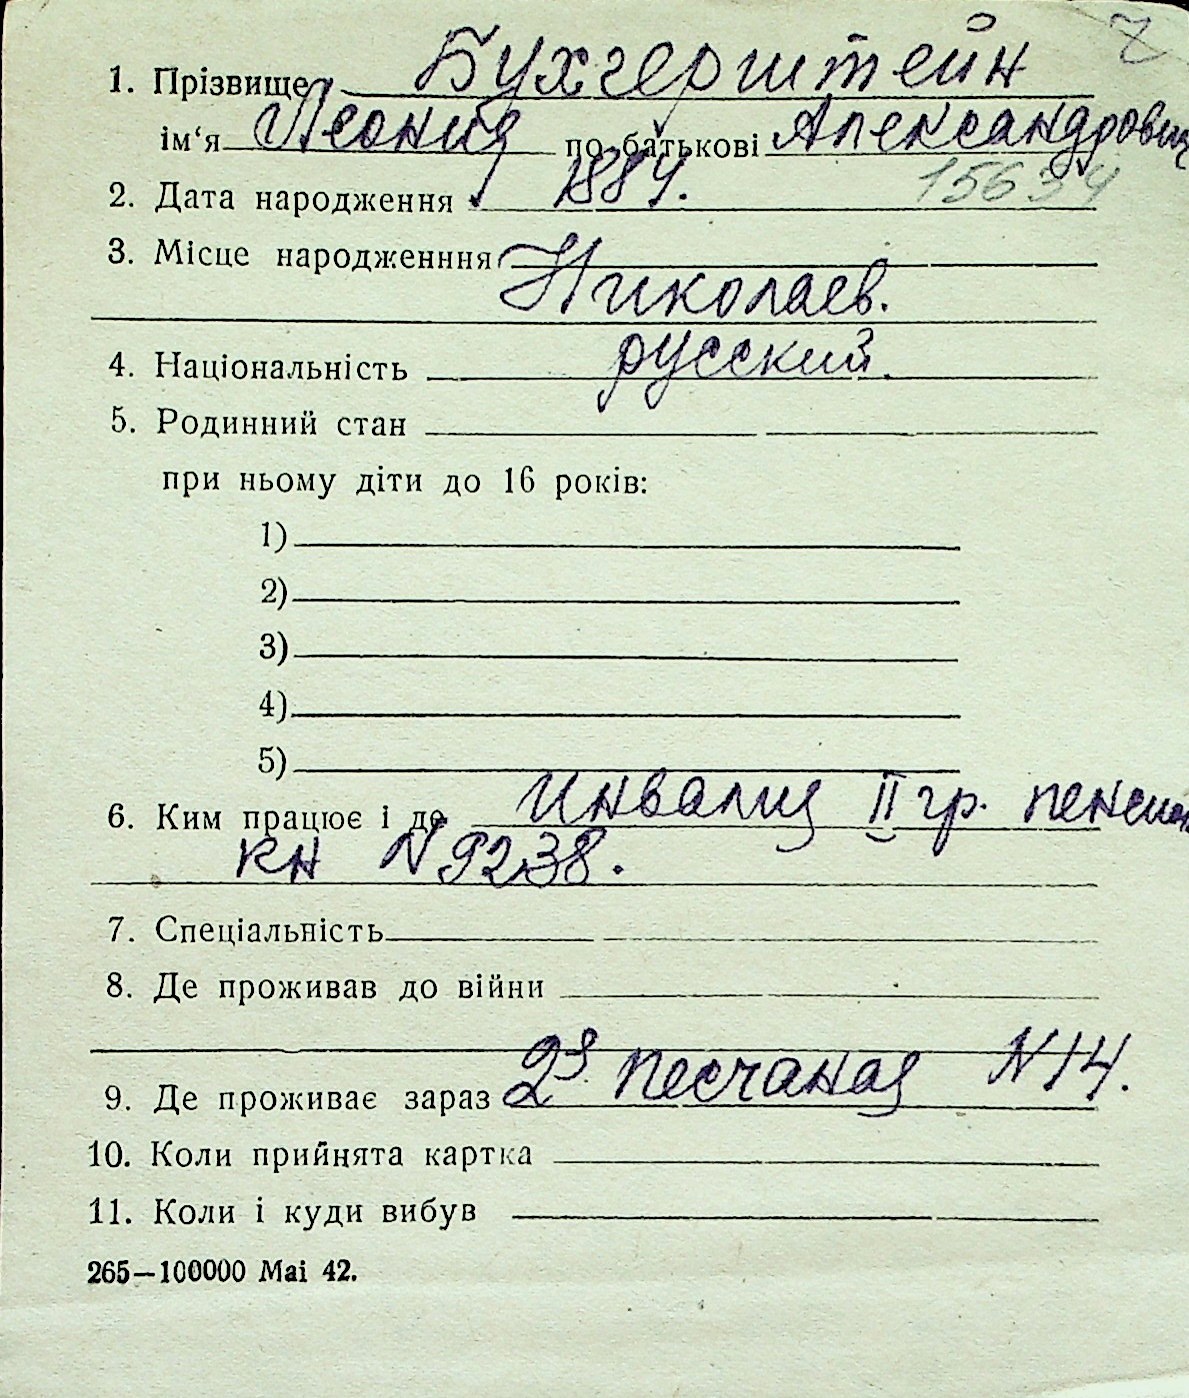 7
1. Прізвище Бухгерштейн
ім‘я Леонид по батькові Александрович
2. Дата народження 1884. 15634
3. Місце народженння
Николаев.
4. Національність русский.
5. Родинний стан
при ньому діти до 16 років:
1)
2)
3)
4)
5)
6. Ким працює і де инвалид II гр. пенсион
кн N 9238.
7. Спеціальність
8. Де проживав до війни
9. Де проживає зараз 2я песчаная N 14.
10. Коли прийнята картка
11. Коли і куди вибув
265—100000 Mai 42.